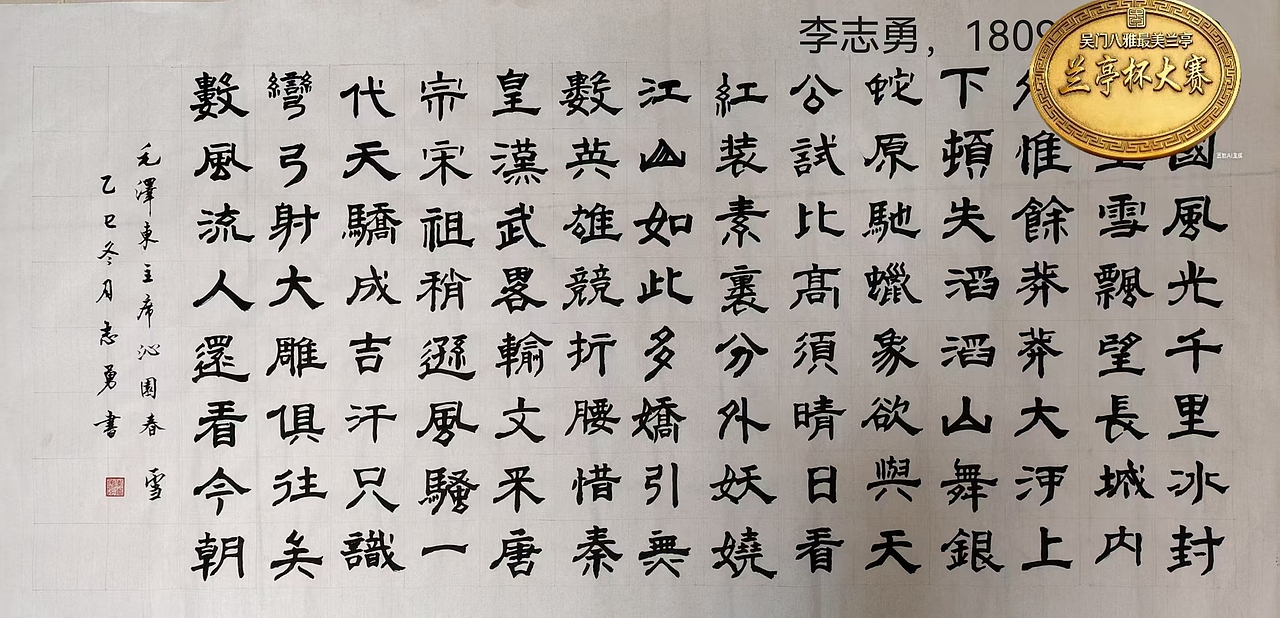 李志勇，1809
吴门八雅最美兰亭
兰亭杯大赛
國風光千里冰封
雪飄望長城內
惟餘莽莽大河上
下頓失滔滔山舞銀
蛇原馳蠟象欲與天
公試比高須晴日看
紅装素裹分外妖嬈
江山如此多嬌引無
數英雄競折腰惜秦
皇漢武畧輸文采唐
宗宋祖稍遜風騷一
代天驕成吉汗只識
彎弓射大雕俱往矣
數風流人還看今朝
毛澤東主席沁園春 雪
乙巳冬月志勇書